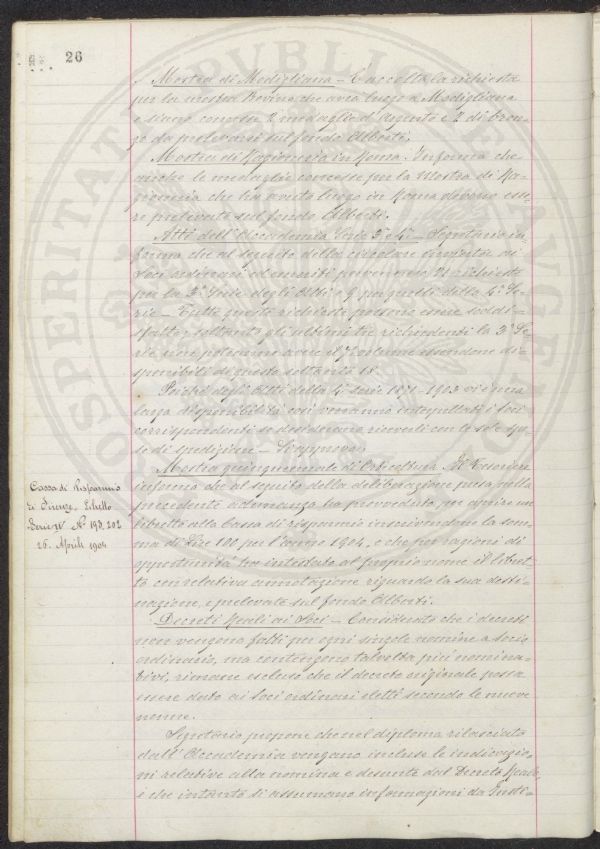 26
Mostra di Modigliana – Caccolta la richiesta
per la mostra Bovina che avrà luogo a Modigliana
e siano concesse 2 medaglie d'Argento e 2 di bron-
zo da prelevarsi sul fondo Alberti.
Mostra di Ragioneria in Roma. Informa che
anche le medaglie concesse per la Mostra di Ra-
gioneria che ha avuto luogo in Roma debbono esse-
re prelevate sul fondo Alberti.
Atti dell'Accademia Serie 3ª e 4ª – Segretario in-
forma che al seguito della circolare ai
Soci ordinari ed emeriti pervennero richieste
per la 3ª Serie degli Atti e 9 per quelli della 4ª Se-
rie – Tutte queste richieste possono essere soddi-
sfatte; soltanto gli ultimi tre richiedenti la 3ª Se-
rie non potranno avere il 7° volume essendone di-
sponibili di questo soltanto 18.
Poiché degli Atti della 4ª serie 1871-1903 vi è una
larga disponibilità così verranno interpellati i soci
corrispondenti se desiderano riceverli con le sole spe-
se di spedizione – Si approva.
Mostra quinquennale di Orticultura. Il Tesoriere
informa che al seguito della deliberazione presa nella
precedente adunanza ha provveduto per aprire un
libretto alla Cassa di risparmio inscrivendone la som-
ma di Lire 100 per l'anno 1904, e che per ragioni di
opportunità ha intestato al proprio nome il libret-
to con relativa annotazione riguardo la sua desti-
nazione, e prelevate sul fondo Alberti.
Cassa di Risparmio
di Firenze. Libretto
Serie IIª N° 193.202
26. Aprile 1904
Decreti Reali ai Soci – Considerato che i decreti
non vengono fatti per ogni singola nomina a socio
ordinario, ma contengono talvolta più nomina-
tivi, rimane escluso che il decreto originale possa
essere dato ai soci ordinari eletti secondo le nuove
norme.
Segretario propone che nel diploma rilasciato
dall'Accademia vengano incluse le indicazio-
ni relative alla nomina e desunte dal Decreto Reale,
e che intanto si assumano informazioni da Isti-